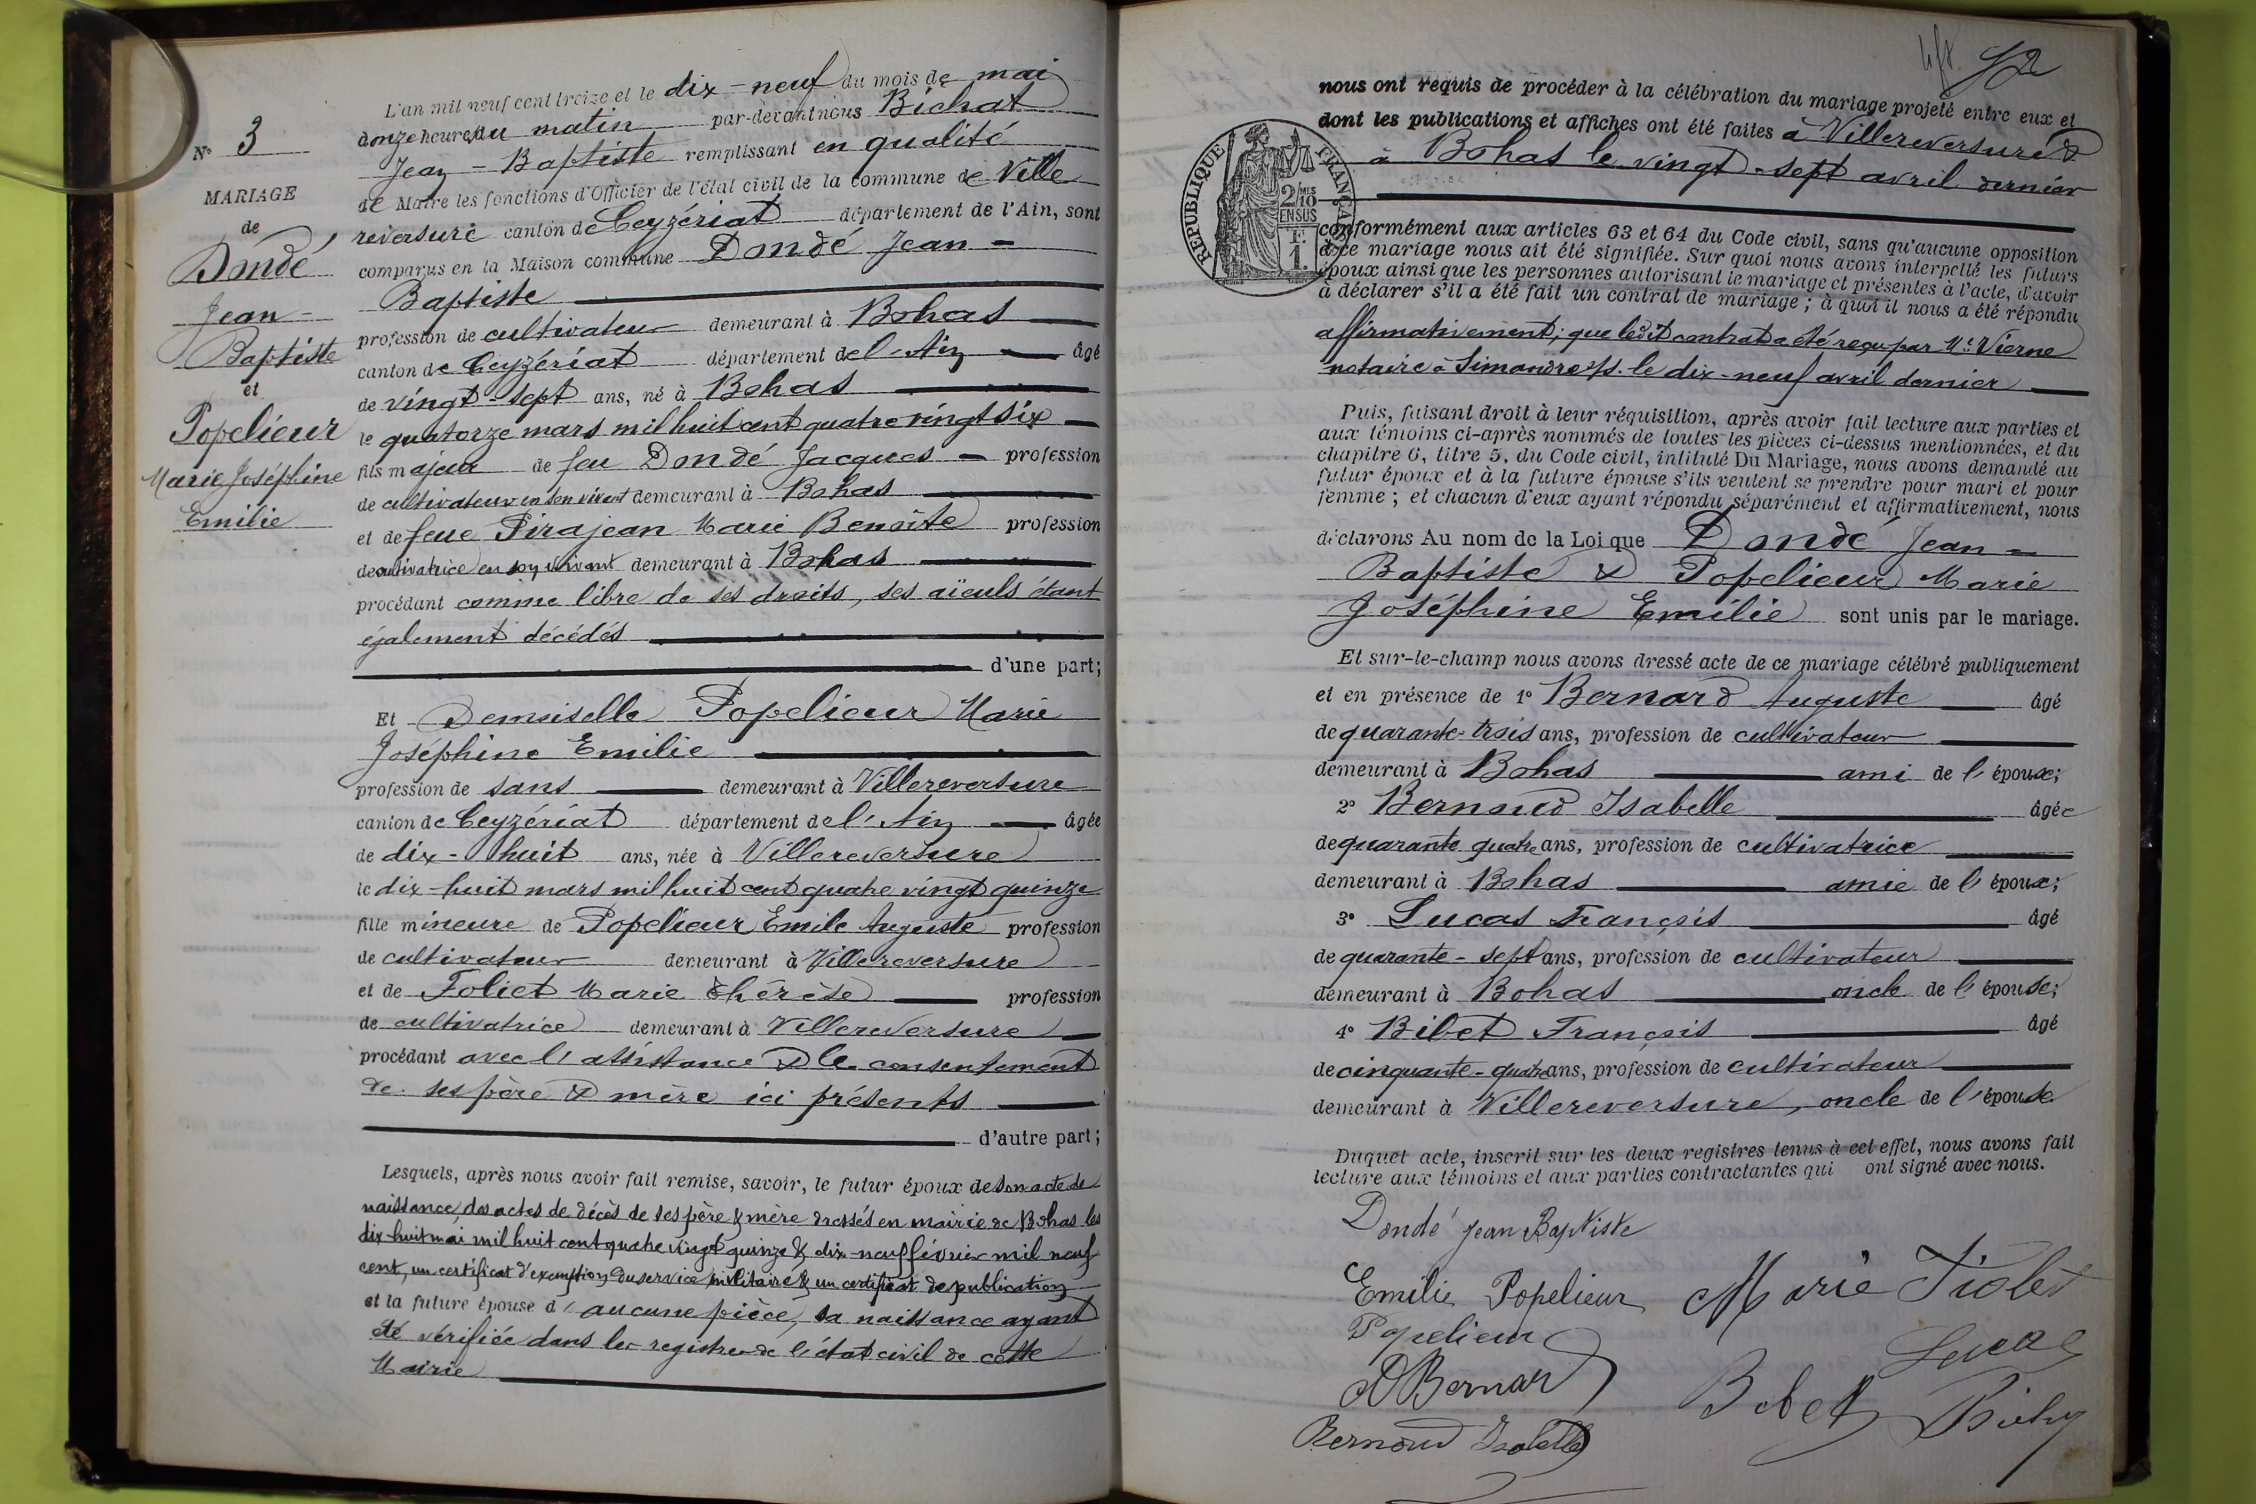 N° 3
MARIAGE
de
Dondé
Jean-
Baptiste
et
Popelieur
Marie Joséphine
Emilie
L'an mil neuf cent treize et le dix-neuf du mois de mai
à onze heures du matin par-devant nous Bichat
Jean-Baptiste remplissant en qualité
de Maire les fonctions d'Officier de l'état civil de la commune de Ville
reversure canton de Ceyzériat département de l'Ain, sont
comparus en la Maison commune Dondé Jean-
Baptiste
profession de cultivateur demeurant à Bohas
canton de Ceyzériat département de l'Ain âgé
de vingt-sept ans, né à Bohas
le quatorze mars mil huit cent quatre vingt six
fils majeur de feu Dondé Jacques profession
de cultivateur en son vivant demeurant à Bohas
et de feue Pirajean Marie Benoîte profession
de cultivatrice en son vivant demeurant à Bohas
procédant comme libre de ses droits, ses aïeuls étant
également décédés
d'une part;
Et Demoiselle Popelieur Marie
Joséphine Emilie
profession de sans demeurant à Villereversure
canton de Ceyzériat département de l'Ain âgée
de dix-huit ans, née à Villereversure
le dix-huit mars mil huit cent quatre vingt quinze
fille mineure de Popelieur Emile Auguste profession
de cultivateur demeurant à Villereversure
et de Foliet Marie Thérèse profession
de cultivatrice demeurant à Villereversure
procédant avec l'assistance & le consentement
de ses père & mère ici présents
d'autre part;
Lesquels, après nous avoir fait remise, savoir, le futur époux de son acte de
naissance, des actes de décès de ses père & mère dressés en mairie de Bohas les
dix-huit mai mil huit cent quatre vingt quinze & dix-neuf février mil neuf
cent, un certificat d'exemption du service militaire & un certificat de publication
et la future épouse d'aucune pièce, sa naissance ayant
été vérifiée dans les registres de l'état civil de cette
Mairie
52
nous ont requis de procéder à la célébration du mariage projeté entre eux et
dont les publications et affiches ont été faites à Villereversure &
à Bohas le vingt-sept avril dernier
RÉPUBLIQUE FRANÇAISE
2/10 MES
EN SUS
F.
1.
conformément aux articles 63 et 64 du Code civil, sans qu'aucune opposition
à ce mariage nous ait été signifiée. Sur quoi nous avons interpellé les futurs
époux ainsi que les personnes autorisant le mariage et présentes à l'acte, d'avoir
à déclarer s'il a été fait un contrat de mariage; à quoi il nous a été répondu
affirmativement; que ledit contrat a été reçu par Me Vierne
notaire à Simandre s/s. le dix-neuf avril dernier
Puis, faisant droit à leur réquisition, après avoir fait lecture aux parties et
aux témoins ci-après nommés de toutes les pièces ci-dessus mentionnées, et du
chapitre 6, titre 5, du Code civil, intitulé Du Mariage, nous avons demandé au
futur époux et à la future épouse s'ils veulent se prendre pour mari et pour
femme; et chacun d'eux ayant répondu séparément et affirmativement, nous
déclarons Au nom de la Loi que Dondé Jean-
Baptiste & Popelieur Marie
Joséphine Emilie sont unis par le mariage.
Et sur-le-champ nous avons dressé acte de ce mariage célébré publiquement
et en présence de 1° Bernard Auguste âgé
de quarante-trois ans, profession de cultivateur
demeurant à Bohas ami de l'époux;
2° Bernoud Isabelle âgée
de quarante quatre ans, profession de cultivatrice
demeurant à Bohas amie de l'époux;
3° Lucas François âgé
de quarante-sept ans, profession de cultivateur
demeurant à Bohas oncle de l'épouse;
4° Bibet François âgé
de cinquante-quatre ans, profession de cultivateur
demeurant à Villereversure, oncle de l'épouse
Duquel acte, inscrit sur les deux registres tenus à cet effet, nous avons fait
lecture aux témoins et aux parties contractantes qui ont signé avec nous.
Dondé Jean Baptiste
Emilie Popelieur Marie Fiolet
Popelieur
Lucas
A Bernard
Bibet
Bichat
Bernoud Isabelle